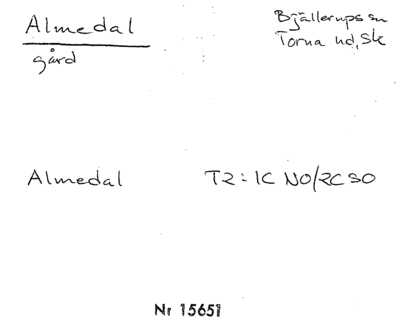 Almedal
Bjällerups sn
gård
Torna hd, Sk
Almedal T2: 1C NO/2C SO
Nr 15651